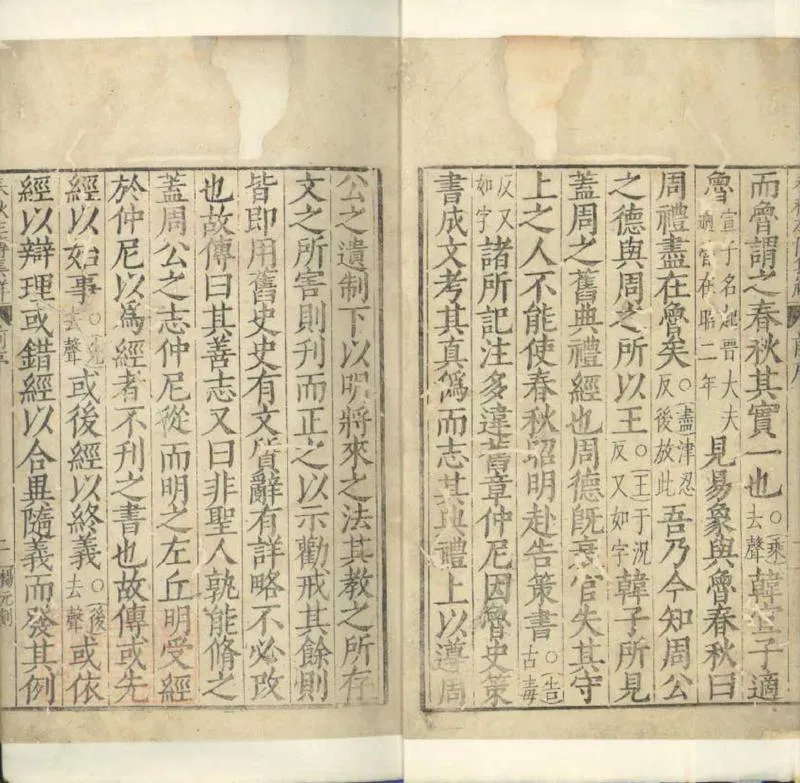 而魯謂之春秋其實一也○乘去聲韓宣子適
魯宣子名起晉大夫適魯在昭二年見易象與魯春秋曰
周禮盡在魯矣○盡津忍反後放此吾乃今知周公
之德與周之所以王○王于況反又如字韓子所見
蓋周之舊典禮經也周德旣衰官失其守
上之人不能使春秋昭明赴告策書○告古毒
反又如字諸所記注多違舊章仲尼因魯史策
書成文考其真僞而志其典禮上以遵周
公之遺制下以明將來之法其教之所存
文之所害則刊而正之以示勸戒其餘則
皆即用舊史史有文質辭有詳略不必改
也故傳曰其善志又曰非聖人孰能脩之
蓋周公之志仲尼從而明之左丘明受經
於仲尼以爲經者不刊之書也故傳或先
經以始事○先去聲或後經以終義○後去聲或依
經以辯理或錯經以合異隨義而發其例
楊元刻